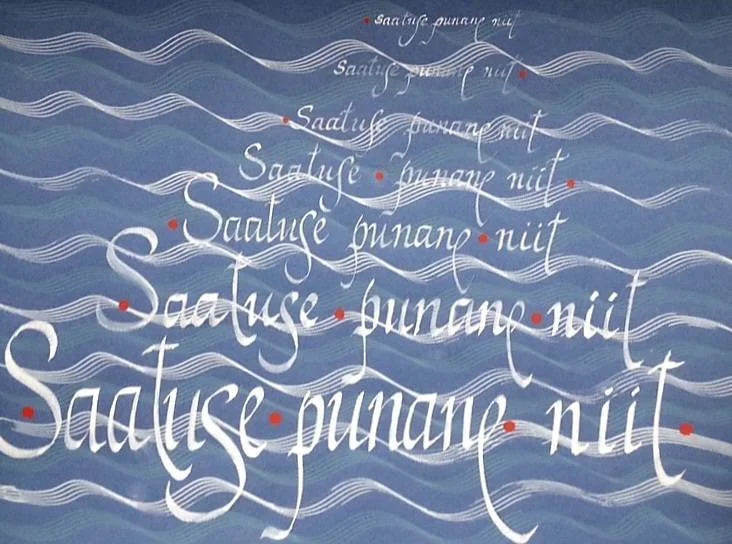 Saatuse punane niit
Saatuse punane niit
Saatuse punane niit
Saatuse punane niit
Saatuse punane niit
Saatuse punane niit
Saatuse punane niit